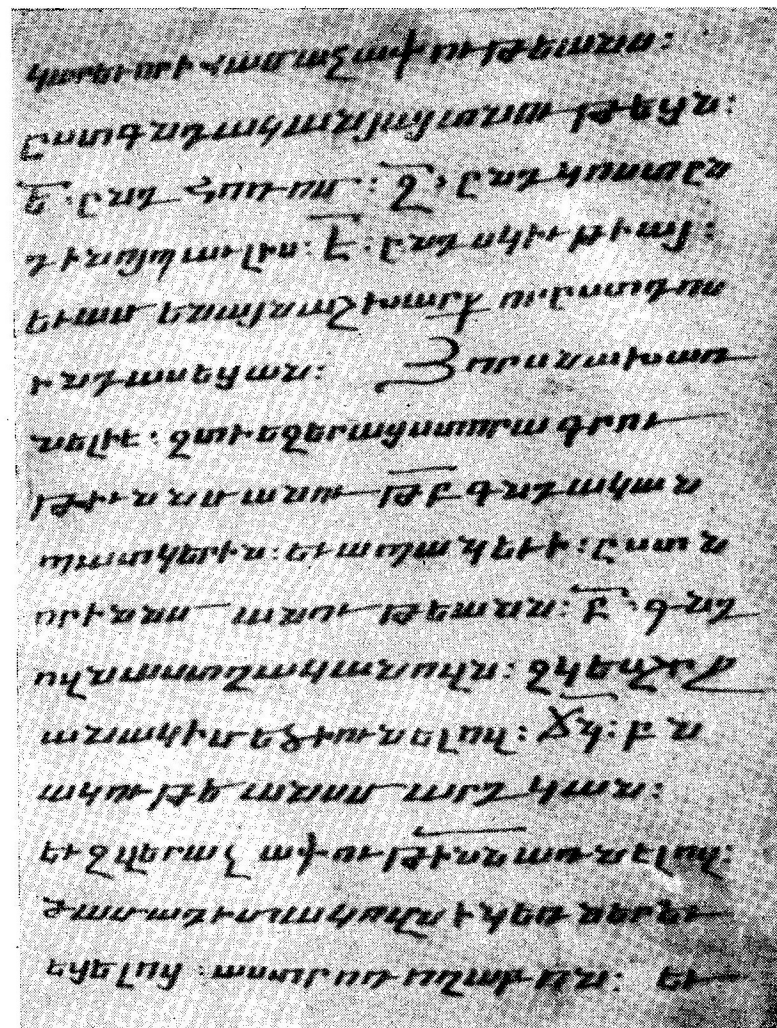 կարեւորի համաչափութեանս։
ըստգնդականյայտնութեցն։
ե․ընդ Հռոռոմ։ զ․ընդ կոստըն
դինոյպաւլիս։ է․ընդ սկիւթիայ։
եւամենայնաշխարհ ուըստդոս
նդասեցան։ Յորսնախառ
նելիէ․զտիեզերայստորագրու
թիւննմանու թբգնդական
պատկերին․եւապակեւի․ըստն
որիննս անութեանն։ բ․գնդ
ովնաստղականովն։ զկեսշրջ
անակիմէջիունելով։ ՃՂ։ բն
ակութեանսմարդկան։
եւզվերաչափութիւննառնելով։
ժամադիտակովնիկեռներեւ
եցելոյ․աստրոռողաբոն։ եւ